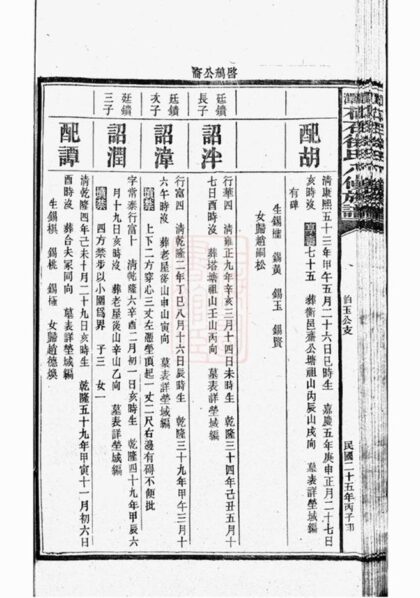 民國二十五年丙子刊
配胡
清康熙五十三年甲午五月二十六日巳時生 嘉慶五年庚申正月二十七日
亥時沒 七十五 葬衡邑齋公塘祖山丙辰山戌向 墓表詳塋域編
有碑
生錫墉 錫黃 錫玉 錫賢
女歸趙嗣松
廷鑌
長子
詔泮
行華四 清雍正九年辛亥三月十四日未時生 乾隆三十四年己丑五月十
七日酉時沒 葬塔塘祖山壬山丙向 墓表詳塋域編
廷鑌
次子
詔漳
行富四 清乾隆二年丁巳八月十六日辰時生 乾隆三十九年甲午三月十
六午時沒 葬老屋後山申山寅向 墓表詳塋域編
墳禁 上下二方穿心三丈左邊塋頂起一丈二尺右邊有碍不便批
廷鑌
三子
詔潤
字常泰行富十 清乾隆六年辛酉二月初一日亥時生 乾隆四十九年甲辰六
月十九日亥時沒 葬老屋後山辛山乙向 墓表詳塋域編
墳禁 四方禁步以小圍爲界 子三 女一
配譚
清乾隆四年己未十月二十九日亥時生 乾隆五十九年甲寅十一月初六日
酉時沒 葬合夫冢同向 墓表詳塋域編
生錫祺 錫桃 錫極
女歸趙德煥